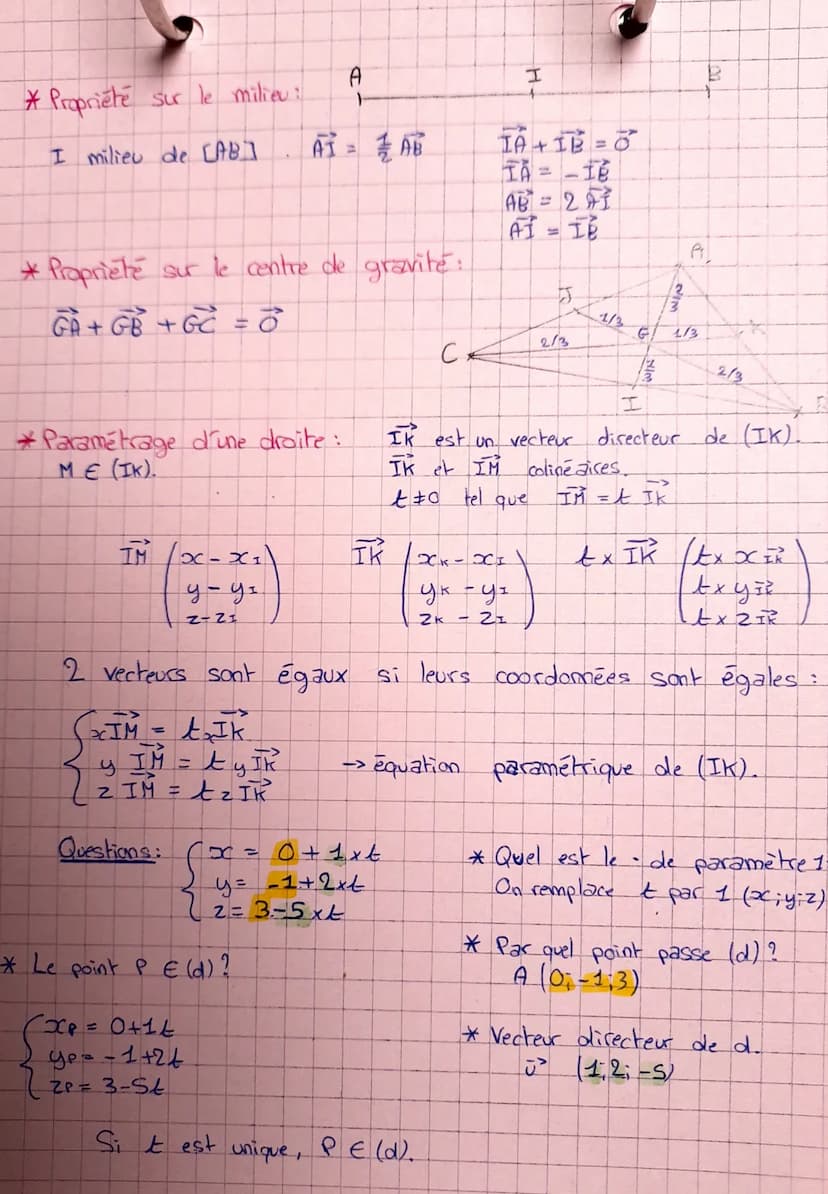 A I B
* Propriété sur le milieu :
I milieu de [AB]. AI⃗ = 1/2 AB⃗
IA⃗ + IB⃗ = O⃗
IA⃗ = - IB⃗
AB⃗ = 2 AI⃗
AI⃗ = IB⃗
* Propriété sur le centre de gravité :
GA⃗ + GB⃗ + GC⃗ = O⃗
A
J
2/3
1/3
G
1/3
K
C
2/3
1/3
2/3
I
* Paramétrage d'une droite :
M ∈ (IK).
IK⃗ est un vecteur directeur de (IK).
IK⃗ et IM⃗ colinéaires.
t ≠ 0 tel que IM⃗ = t IK⃗
IM⃗ (x - xI IK⃗ (xK - xI t x IK⃗ (t x x IK⃗
y - yI yK - yI t x y IK⃗
z - zI) zK - zI) t x z IK⃗)
2 vecteurs sont égaux si leurs coordonnées sont égales :
{ x IM⃗ = t x IK⃗
y IM⃗ = t y IK⃗ → équation paramétrique de (IK).
z IM⃗ = t z IK⃗
Questions : { x = 0 + 1 x t
y = -1 + 2 x t
z = 3 - 5 x t
* Quel est le · de paramètre 1
On remplace t par 1 (x ; y ; z)
* Par quel point passe (d) ?
A (0 ; -1 ; 3)
* Le point P ∈ (d) ?
{ xP = 0 + 1t
yP = -1 + 2t
zP = 3 - 5t
* Vecteur directeur de d.
u⃗ (1 ; 2 ; -5)
Si t est unique, P ∈ (d).